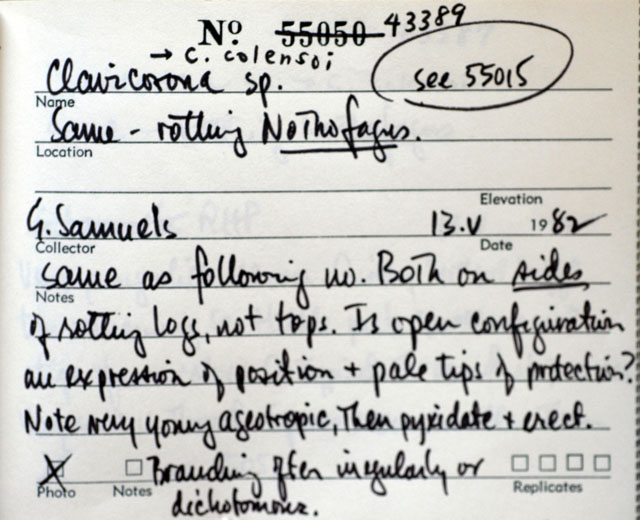 Nº 55050 43389
→ C. colensoi
Clavicorona sp. see 55015
Name
Same - rotting Nothofagus.
Location
Elevation
G. Samuels 13.V 1982
Collector Date
Same as following no. Both on sides
Notes
of rotting logs, not tops. Is open configuration
an expression of position + pale tips of protection?
Note very young ageotropic, Then pyxidate + erect.
Branching often irregularly or
Photo Notes Replicates
dichotomous.